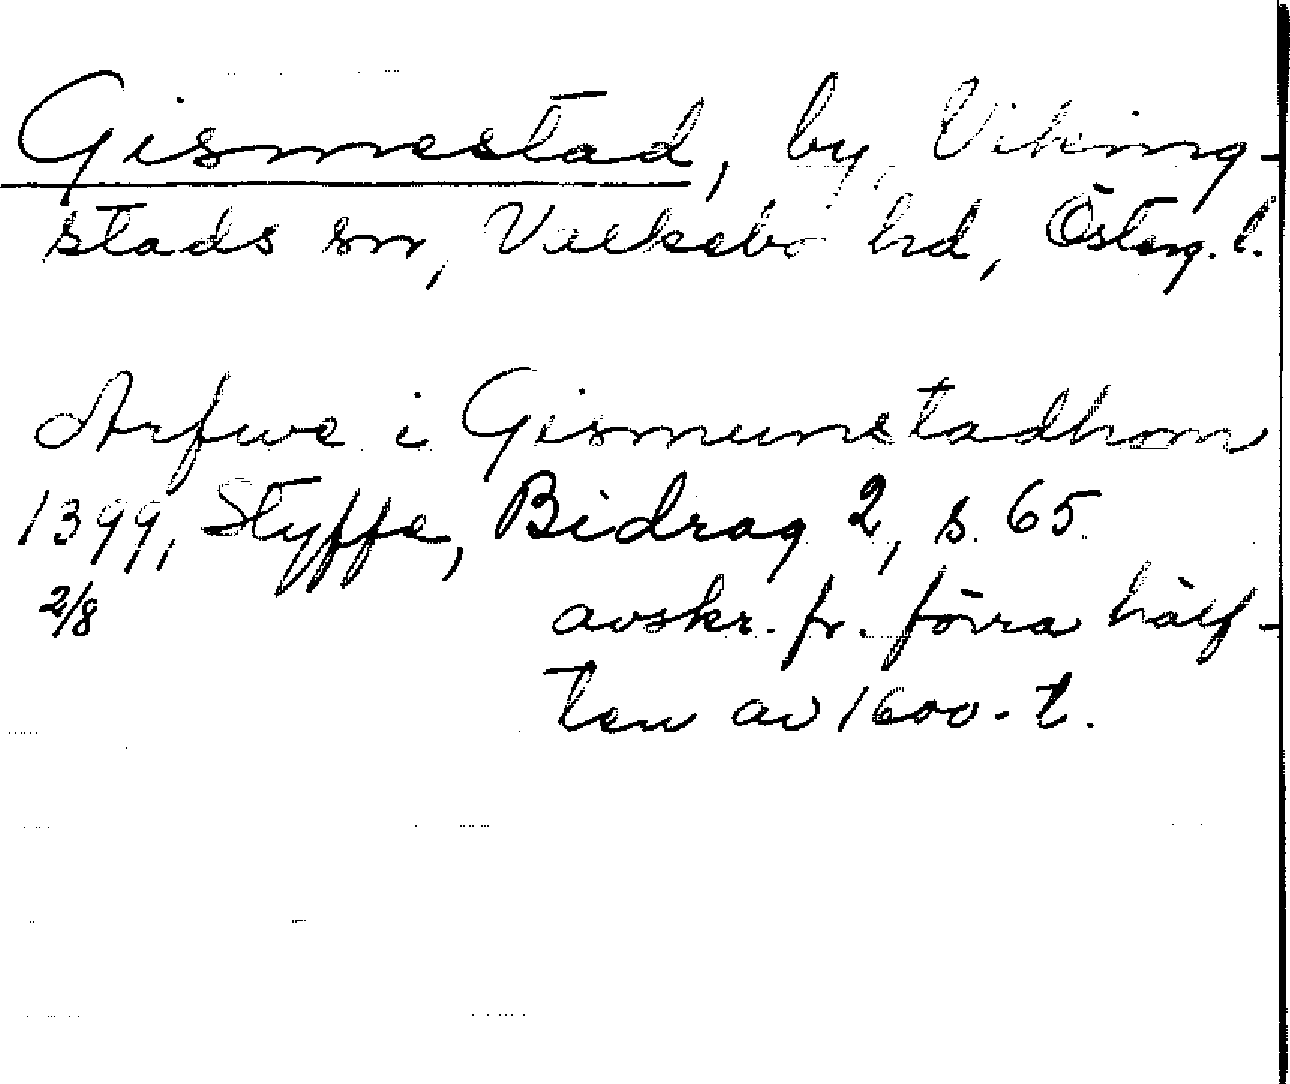 Gismestad, by, Viking-
stads sn, Valkebo hd, Österg. l.
Arfwe i Gismunstadhom
1399, Styffe, Bidrag 2, s. 65.
2/8 avskr. fr. förra hälf-
ten av 1600-t.